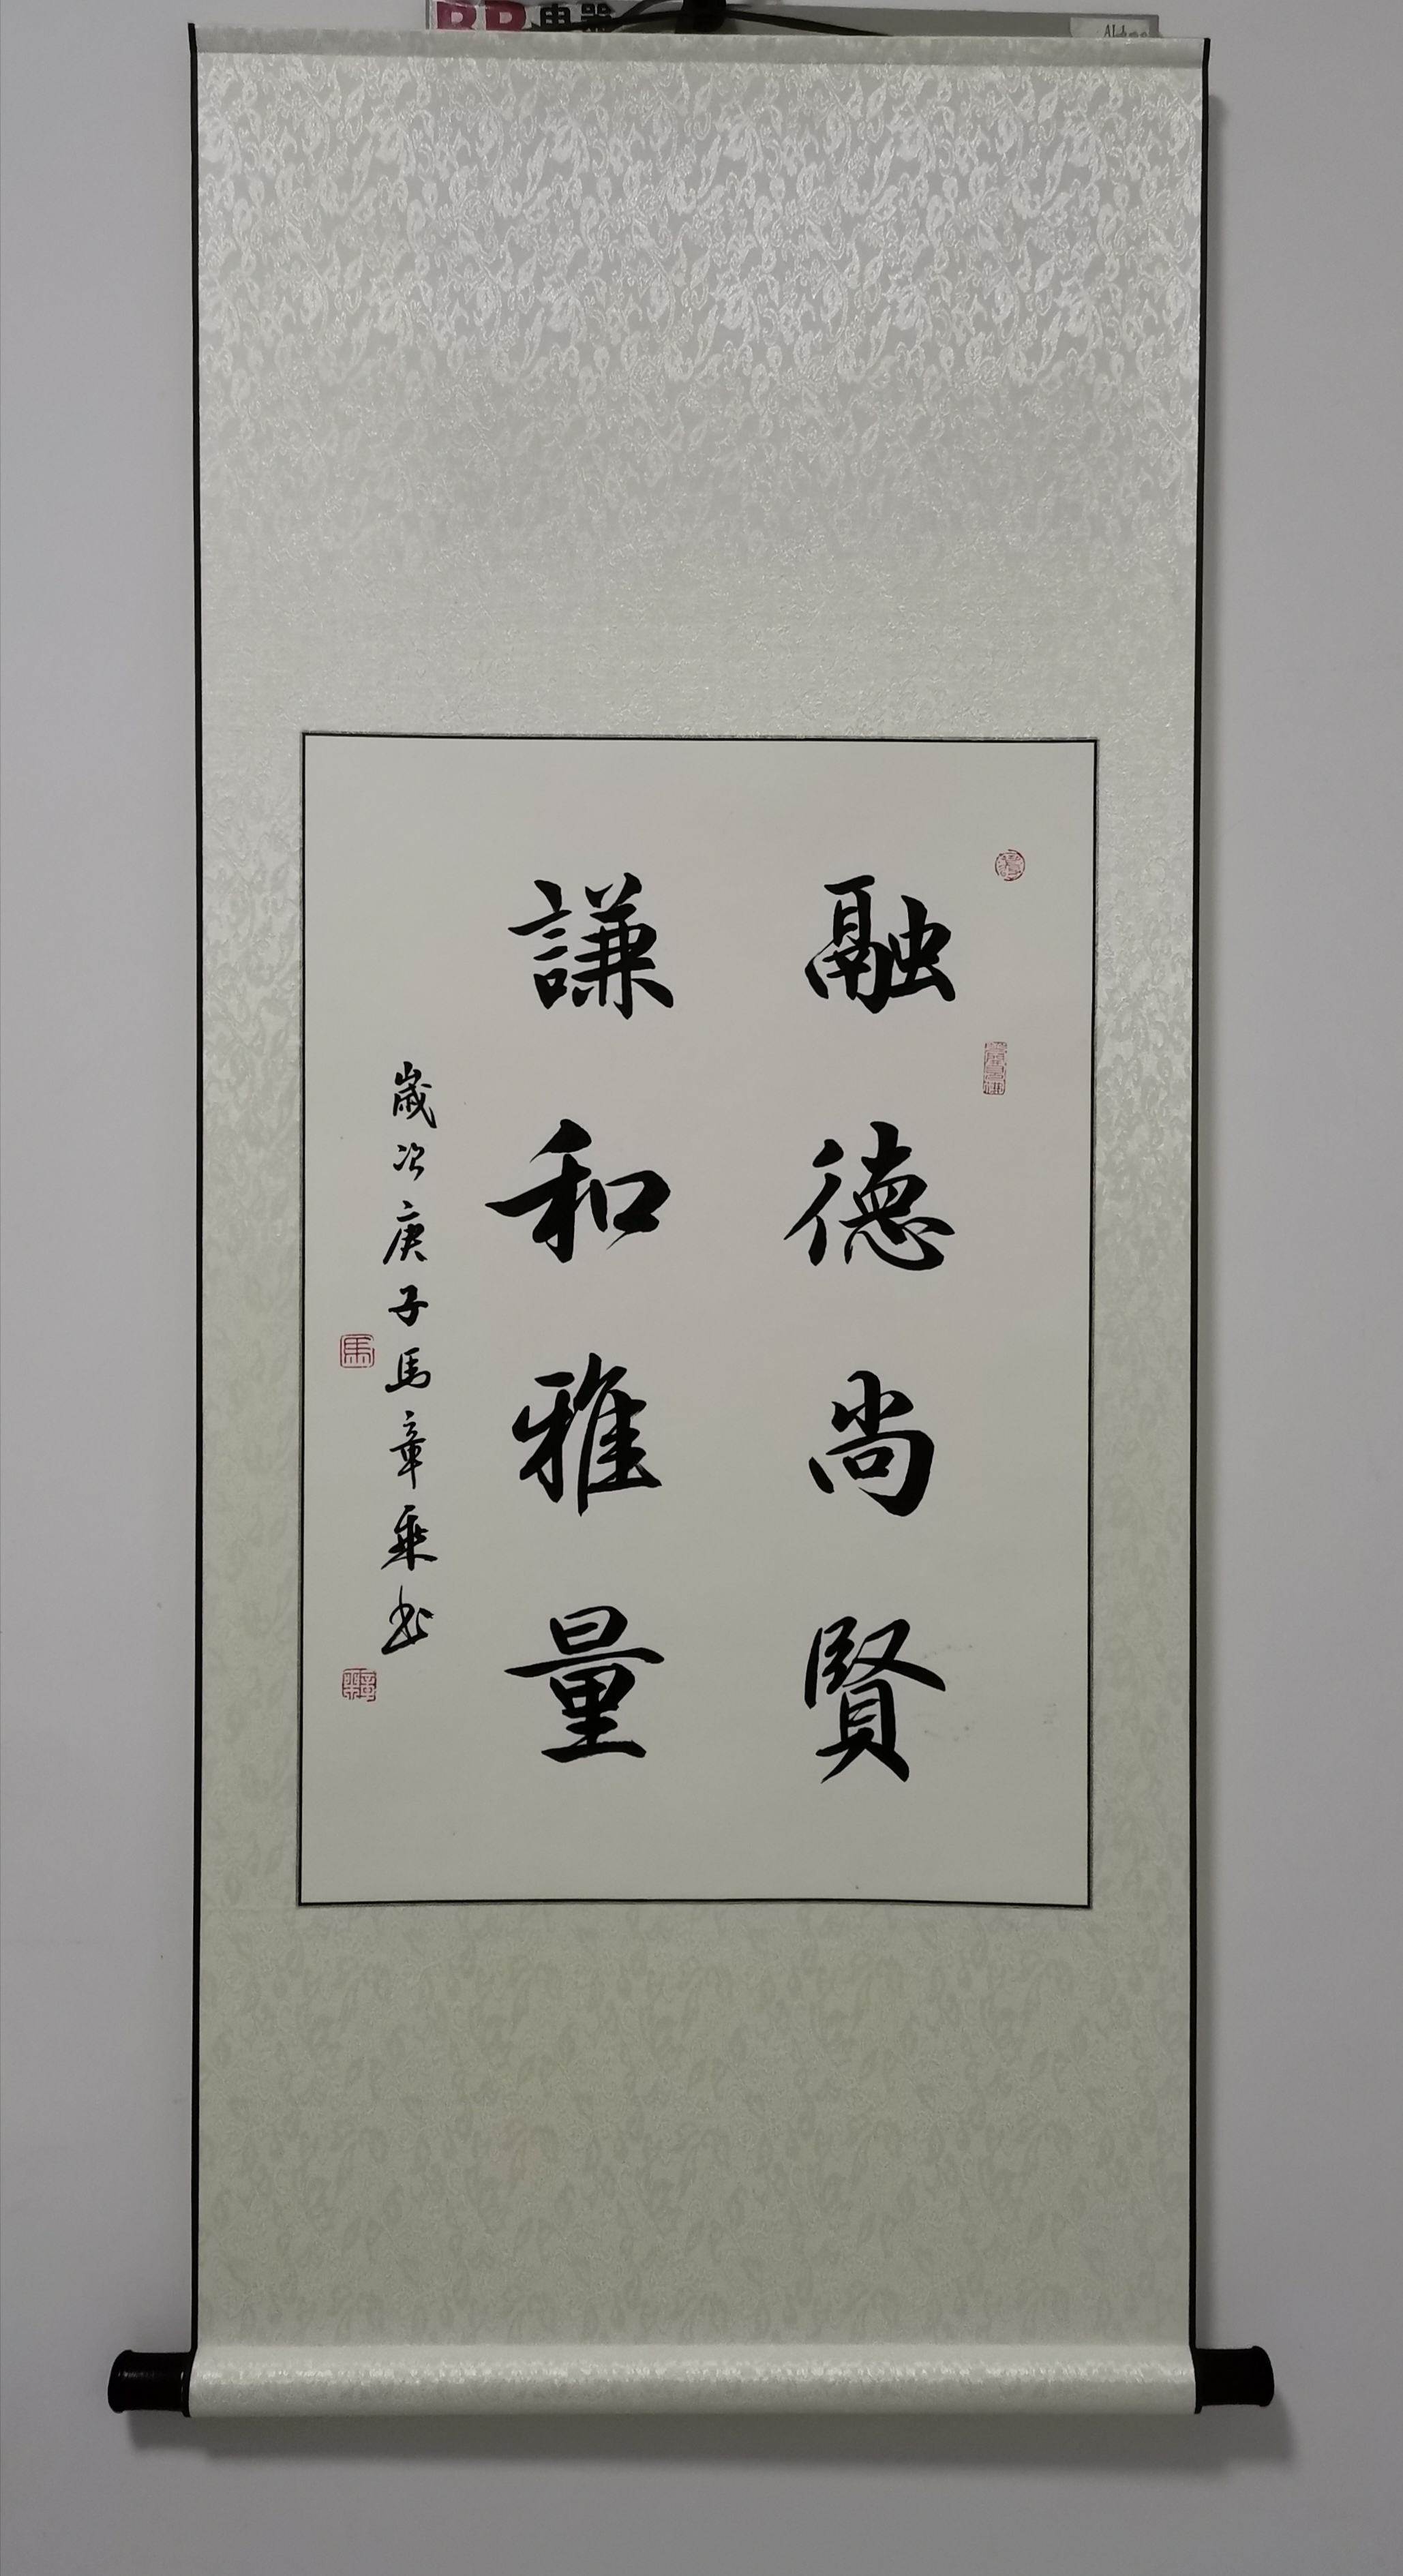 融德尚賢
謙和雅量
歲次庚子馬章乘书
馬
电器